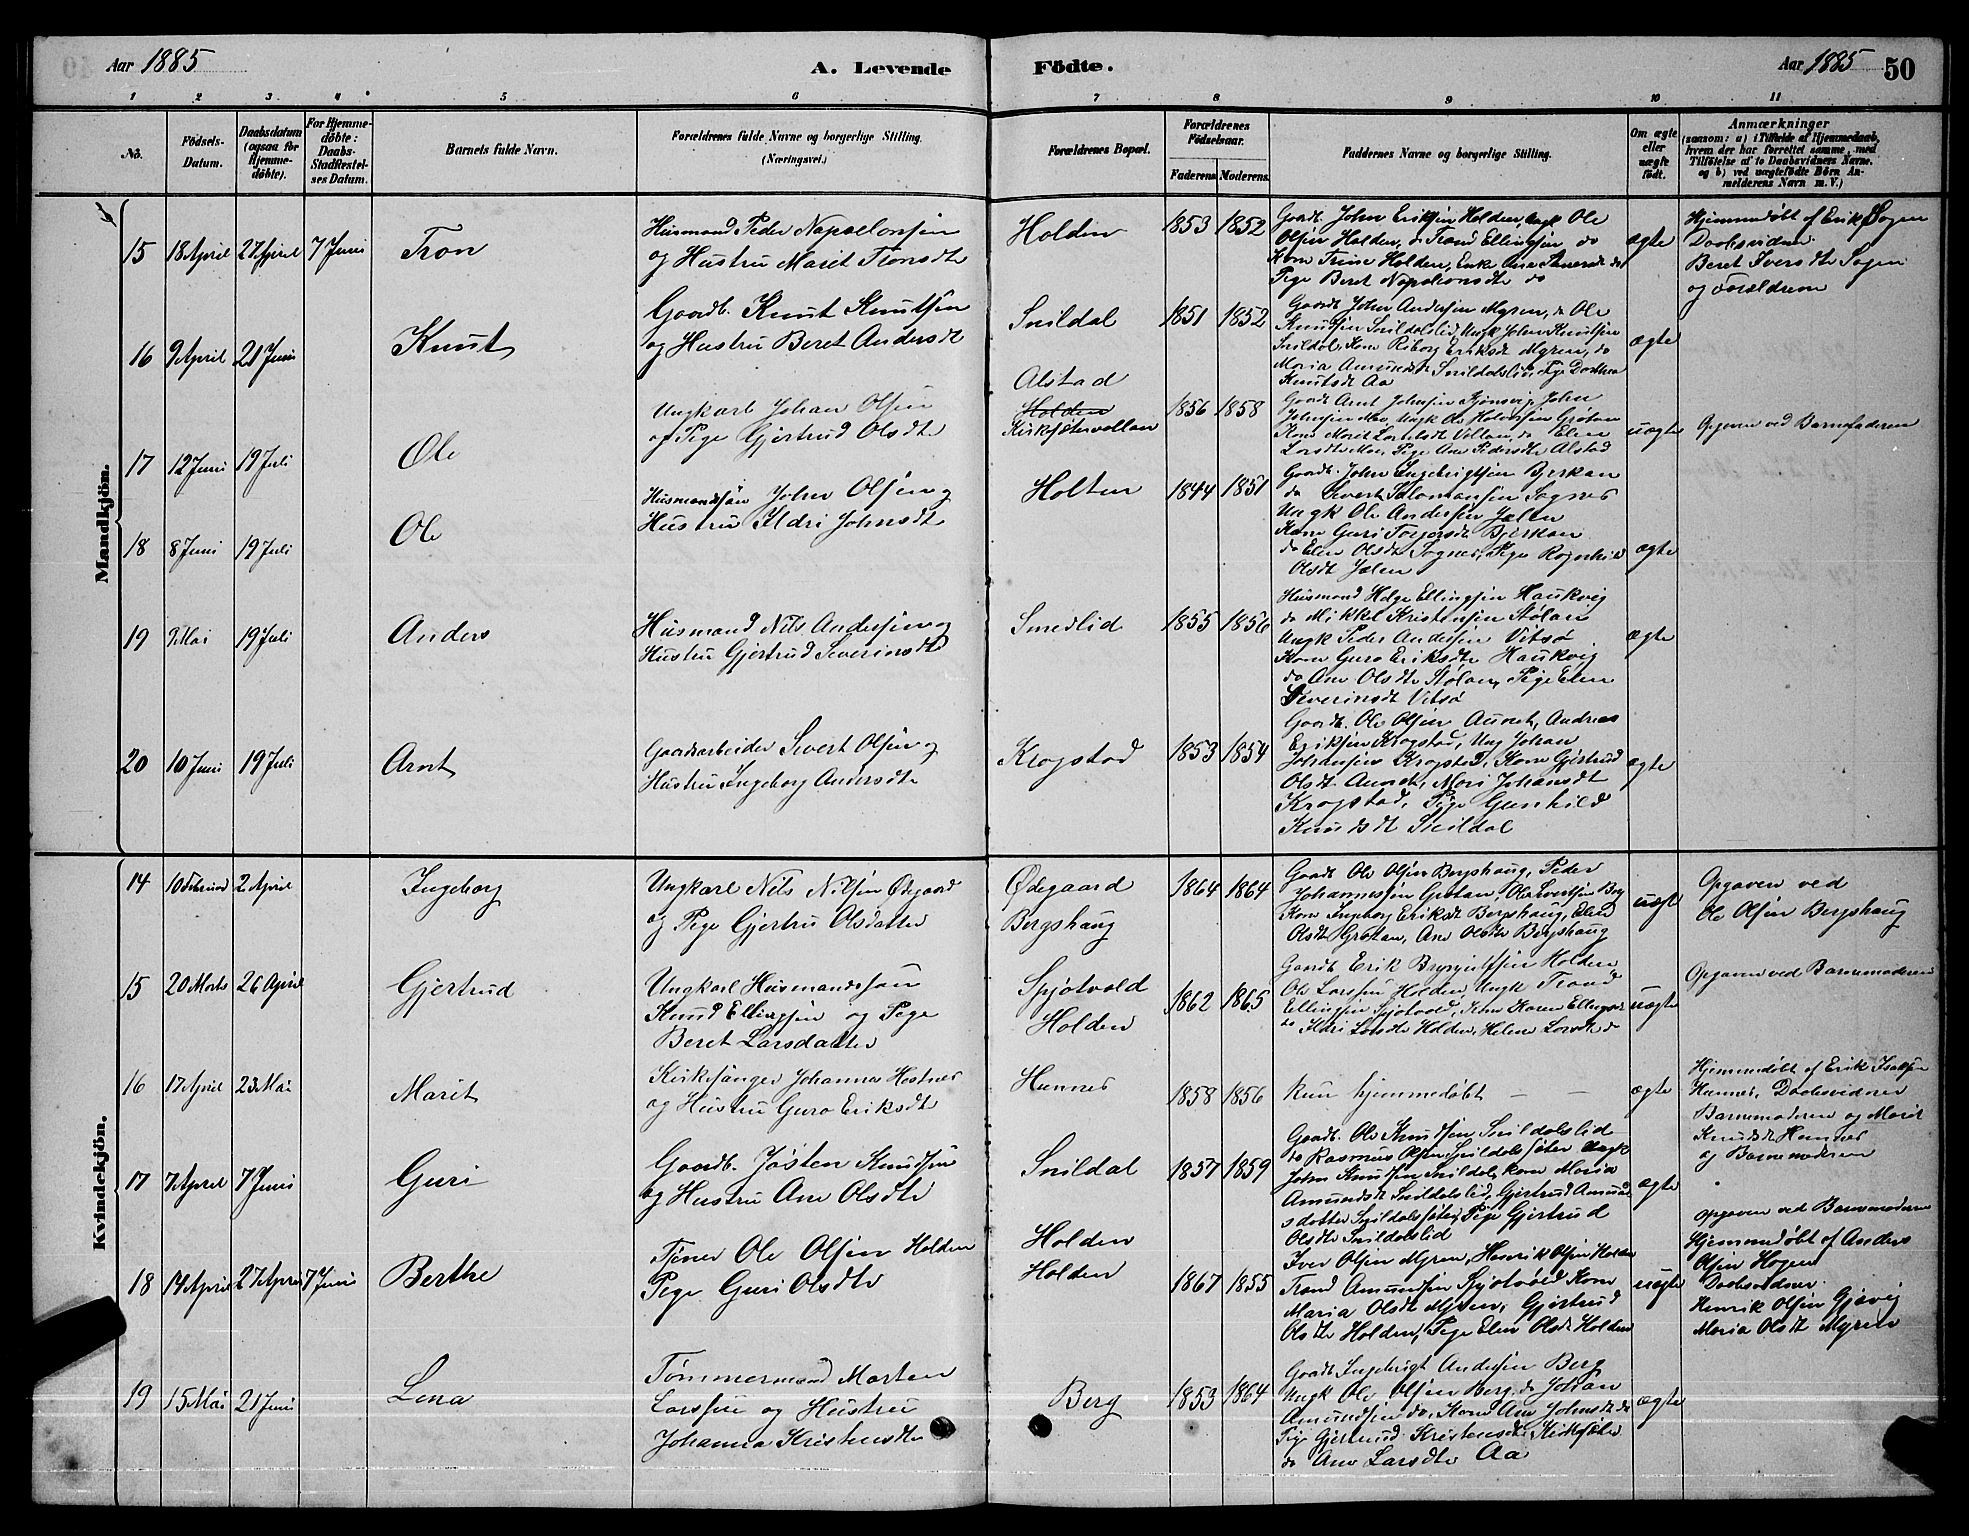 Aar 1885
A. Levende
Födte.
Aar 1885
50
1 2 3 4 5 6 7 8 9 10 11
No.
Födsels-
Datum.
Daabsdatum
(ogsaa for
Hjemme-
döbte).
For Hjemme-
döbte:
Daabs-
Stadfestel-
ses Datum.
Barnets fulde Navn.
Forældrenes fulde Navne og borgerlige Stilling.
(Næringsvei.)
Forældrenes Bopæl.
Forældrenes
Födselsaar.
Faderens
Moderens
Faddernes Navne og borgerlige Stilling.
Om ægte
eller
uægte
födt.
Anmærkninger
(saasom: a) i Tilfælde af Hjemmedaab,
hvem der har forrettet samme, med
Tilföielse af to Daabsvidners Navne.
og b) ved uægtefödte Börn An-
melderens Navn m. V.)
Mandkjön.
15 18 April 27 April 7 Juni Tron
Husmand Peder Napoleonsen
og Hustru Marit Tronsdtr
Holden
1853 1852
Gaardb. John Eriksen Holden, Ungk Ole
Olsen Holden, do Trond Ellingsen do
Kone Trine Holden, Enke Ane
Pige Beret Napoleonsdtr do
ægte
Hjemmedøbt af Erik Sogen
Daabsvidner:
Beret Iversdtr Sogen
og Forældrene
16 9 April 21 Juni Knut
Gaardb. Knut Knutsen
og Hustru Beret Andersdt
Snildal
1851 1852
Gaardb. John Andersen Myren, do Ole
Knutsen Snildalslid, Ungk John Knutsen
Snildal, Kone Eriksdt Myren, do
Maria Amundsdt Snildalslid, Pige Dorthea
Knutsdt Aa
ægte
17 12 Juni 19 Juli Ole
Ungkarl Johan Olsen
og Pige Gjertrud Olsdtr
Alstad
Holden
Kirksætervollan
1856 1858
Gaardb Arnt Johnsen Rønsvig, John
Johnsen Moe, Ungk Ole Grøtan
Kone Marit Larsdt Vollan, do Elen
Larsdtr Moe, Pige Ane Pedersdtr Alstad
uægte
Opgaven ved Barnefaderen
18 8 Juni 19 Juli Ole
Husmandssøn John Olsen og
Hustru Ildri Johnsdtr
Holten
1844 1851
Gaardb. John Ingebrigtsen Bjerkan
do Sivert Salomonsen Sognes
Ungk Ole Andersen Jælen
Kone Guri Torgersdt Bjerkan
do Elen Olsdt Sognes, Pige Ragnhild
Olsdt Jælen
ægte
19 2 Mai 19 Juli Anders
Husmand Nils Andersen og
Hustru Gjertrud Severinsdt
Smedlid
1855 1856
Husmand Helge Ellingsen Haukvig
do Mikkel Kristensen Stølan
Ungk Peder Andersen Vitsø
Kone Guro Eriksdtr Haukvig
do Ane Olsdtr Stølan, Pige Elen
Severinsdt Vitsø
ægte
20 10 Juni 19 Juli Arnt
Gaardsarbeider Sivert Olsen og
Hustru Ingeborg Andersdtr
Krogstad
1853 1854
Gaardb. Ole Olsen Aunet, Andreas
Eriksen Krogstad, Ung Johan
Johansen Krogstad, Kone Gjertrud
Olsdt Aunet, Mari Johansdt
Krogstad, Pige Gunhild
Knudsdt Snildal
ægte
Kvindekjön.
14 10 Februar 2 April Ingeborg
Ungkarl Nils Nilsen Ødegaard
og Pige Gjertru Olsdatter
Ødegaard
Bergshaug
1864 1864
Gaardb Ole Olsen Bergshaug, Peder
Johannesen Grøtan, Ole Sivertsen Berg
Kone Ingeborg Eriksdt Bergshaug, Elen
Olsdt Grøtan, Ane Olsdtr Bergshaug
uægte
Opgaven ved
Ole Olsen Bergshaug
15 20 Marts 26 April Gjertrud
Ungkarl Husmandssøn
Knud Ellingsen og Pige
Beret Larsdatter
Spjøtvold
Holden
1862 1865
Gaardb Erik Brynjulfsen Holden
Ole Larssen Holden, Ungk Trond
Ellingsen Spjøtvold, Kone Karen Ellingsdt
do Kari Larsdtr Holden, Helen Larsdt do
uægte
Opgaven ved Barnemoderen
16 17 April 23 Mai Marit
Kirkesanger Johannes Hestnes
og Hustru Guro Eriksdtr
Hennes
1858 1856
kun hjemmedøbt — —
ægte
Hjemmedøbt af Erik Isaksen
Hennes, Daabsvidner
Barnemoderen og Marit
Knudsdt Hennes
og Barnemoderen
17 7 April 7 Juni Guri
Gaardb. Jøsten Knudsen
og Hustru Ane Olsdtr
Snildal
1857 1859
Gaardb. Ole Knudsen Snildalslid
do Rasmus Olsen Snildalsæter Ungk
John Knutsen Snildal, Kone Maria
Amundsdt Snildalslid, Gjertrud Amund
sdatter Snildalsæter, Pige Gjertrud
Olsdtr Snildalslid
ægte
18 14 April 27 April 7 Juni Berthe
Tjener Ole Olsen Holden
Pige Guri Olsdtr
Holden
Holden
1867 1855
Iver Olsen Myren, Henrik Olsen Holden
Trond Amundsen Spjøtvold Kone
Maria Olsdt Myren, Gjertrud
Olsdtr Holden, Pige Elen Olsdt Holden
uægte
Opgaven ved Barnemoderen
Hjemmedøbt af Anders
Olsen Hogen
Daabsvidner:
Henrik Olsen Gjøvig
Maria Olsdt Myren
19 15 Mai 21 Juni Lena
Tømmermand Morten
Larssen og Hustru
Johanna Kristensdtr
Berg
1853 1864
Gaardb Ingebrigt Andersen Berg
Ungk Ole Olsen Berg, do Johan
Amundsen do, Kone Ane Johnsdt do
Pige Gjertrud Kristensdt Kirksæter
do Ane Larsdtr Aa
ægte